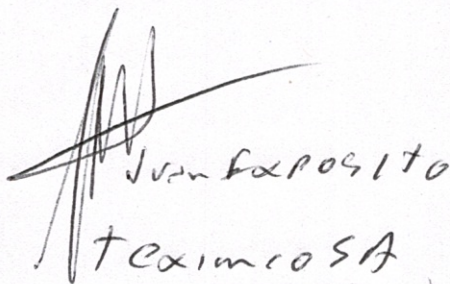 Juan Exposito
Teximco SA